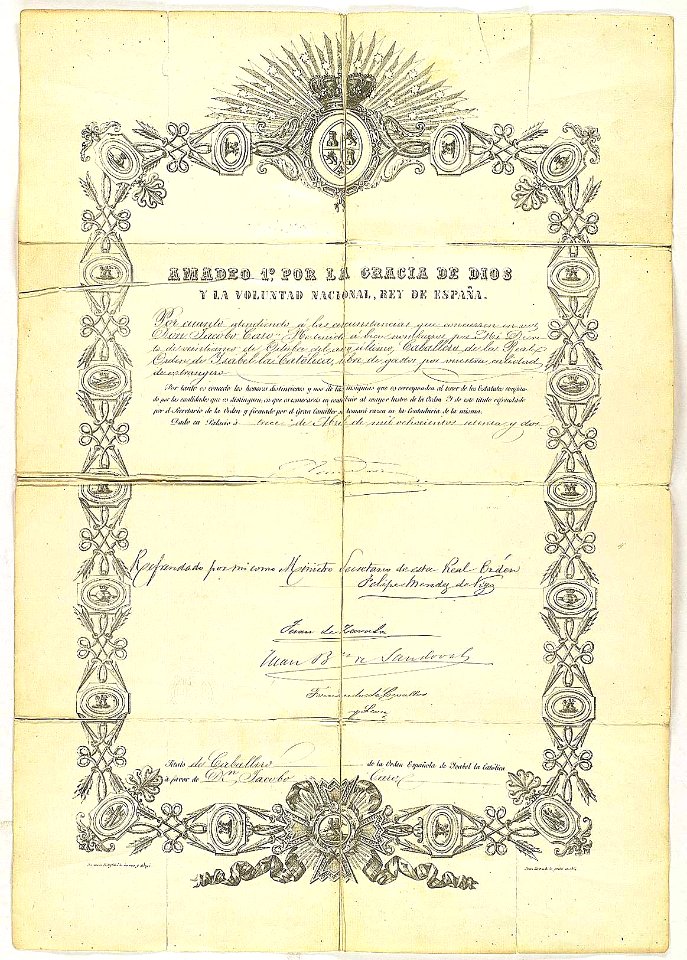 AMADEO 1º. POR LA GRACIA DE DIOS
Y LA VOLUNTAD NACIONAL, REY DE ESPAÑA.
Por cuanto atendiendo á las circunstancias que concurren en vos
Don Jacobo Caro, He tenido á bien nombraros por Mi Decre-
to de veintiuno de Octubre del año último, Caballero de la Real
Orden de Isabel la Católica, libre de gastos por mision, en calidad
de estrangero
Por tanto os concedo los honores distinciones y uso de las insignias que os corresponden al tenor de los Estatutos
do por las cualidades que os distinguen, en que os esmerareis en contribuir al mayor lustre de la Orden. Y de este título refrendado
por el Secretario de la Orden y firmado por el Gran Canciller se tomará razon en la Contaduria de la misma.
Dado en Palacio á trece de Abril de mil ochocientos setenta y dos
Refrendado por mi como Ministro Secretario de esta Real Orden
Felipe Mendez de Vigo
Juan de
Juan B.ta de Sandoval
Titulo de Caballero de la Orden Española de Isabel la Católica
á favor de Dn. Jacobo Caro